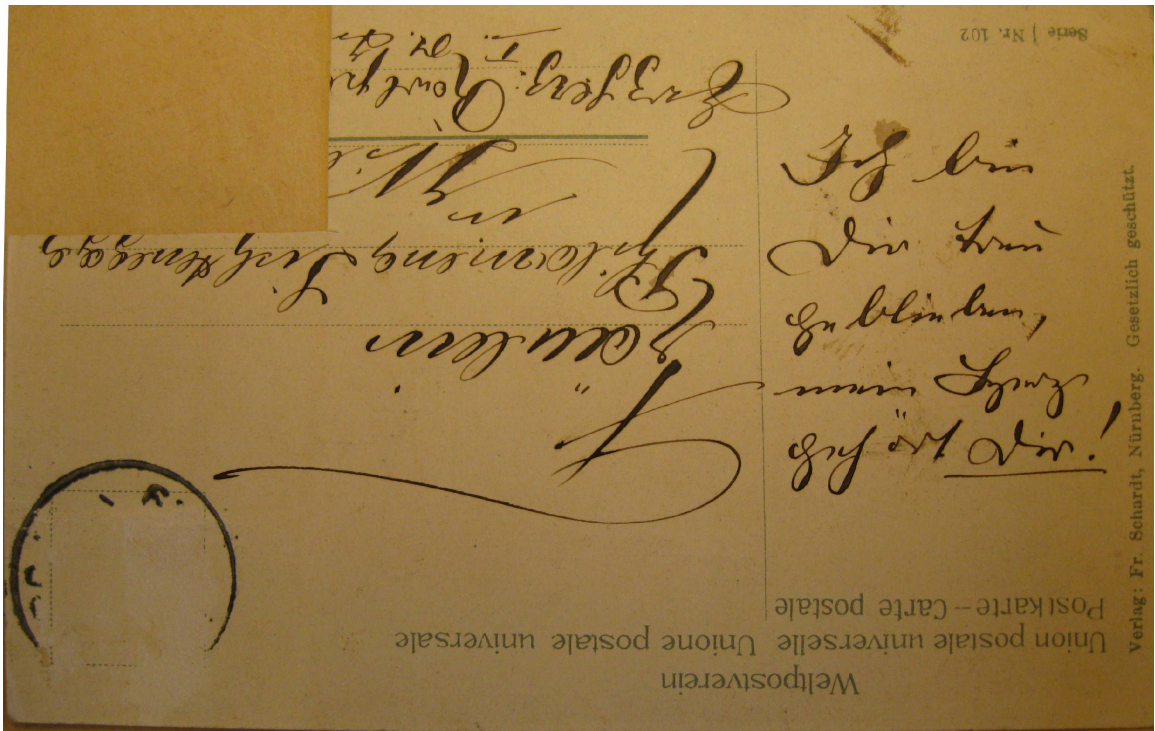 Weltpostverein
Union postale universelle Unione postale universale
Postkarte – Carte postale
Fräulein
Philomena
in
Erzherz:
Ich bin
Dir treu
geblieben,
mein Herz
gehört Dir!
Verlag: Fr. Schardt, Nürnberg. Gesetzlich geschützt.
Serie | Nr. 102